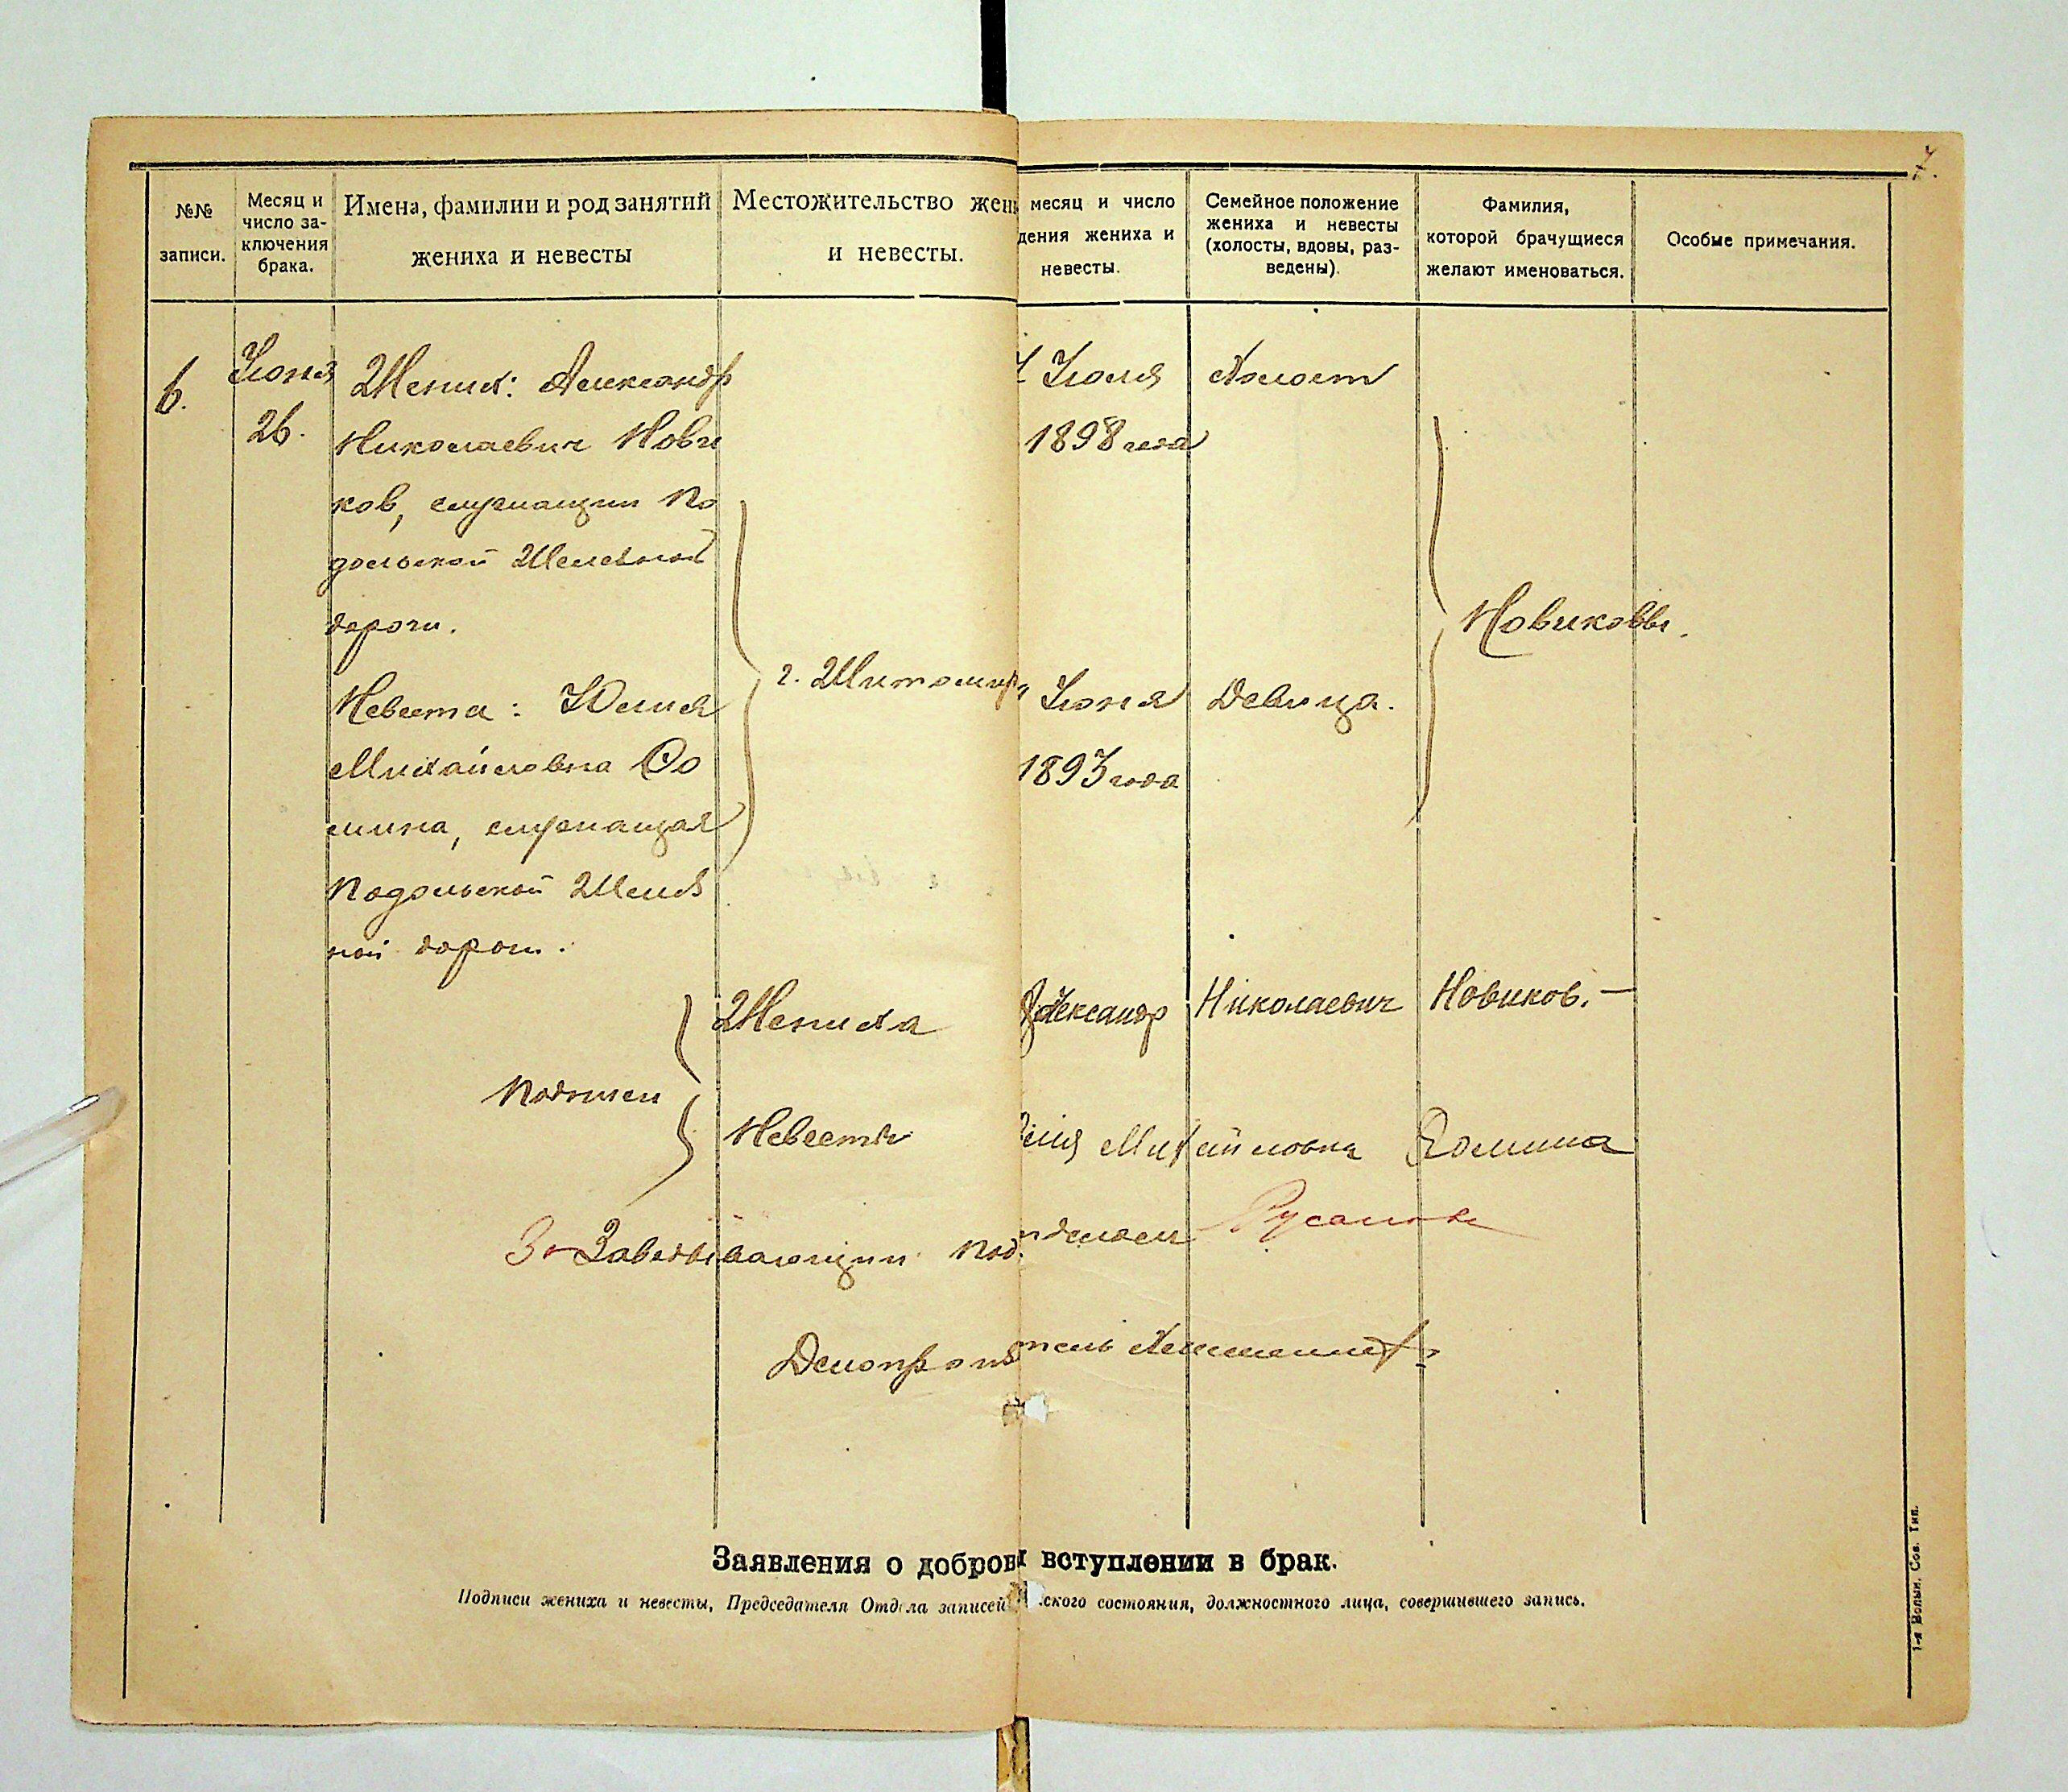 7.
№№ записи.
Месяц и число за-
ключения брака.
Имена, фамилии и род занятий
жениха и невесты
Местожительство жен
и невесты.
месяц и число
дения жениха и
невесты.
Семейное положение
жениха и невесты
(холосты, вдовы, раз-
ведены).
Фамилия,
которой брачущиеся
желают именоваться.
Особые примечания.
6.
Июня
26.
Жених: Александр
Николаевич Нови
ков, служащий По
дольской Железной
дороги.
Невеста: Юлия
Михайловна Фо
мина, служащая
Подольской Желез
ной дорог.
г. Житомир
Июля
1898 года
Июня
1893 года
Холост
Девица.
Новиковы.
Подписи
Жениха Александр Николаевич Новиков. —
Невесты Михайловна Фомина
За Заведывающий Под отделом Русанов
Делопроизводитель
Заявления о добров вступлении в брак.
Подписи жениха и невесты, Председателя Отдела записей ского состояния, должностного лица, совершившего запись.
1-я Волын. Сов. Тип.